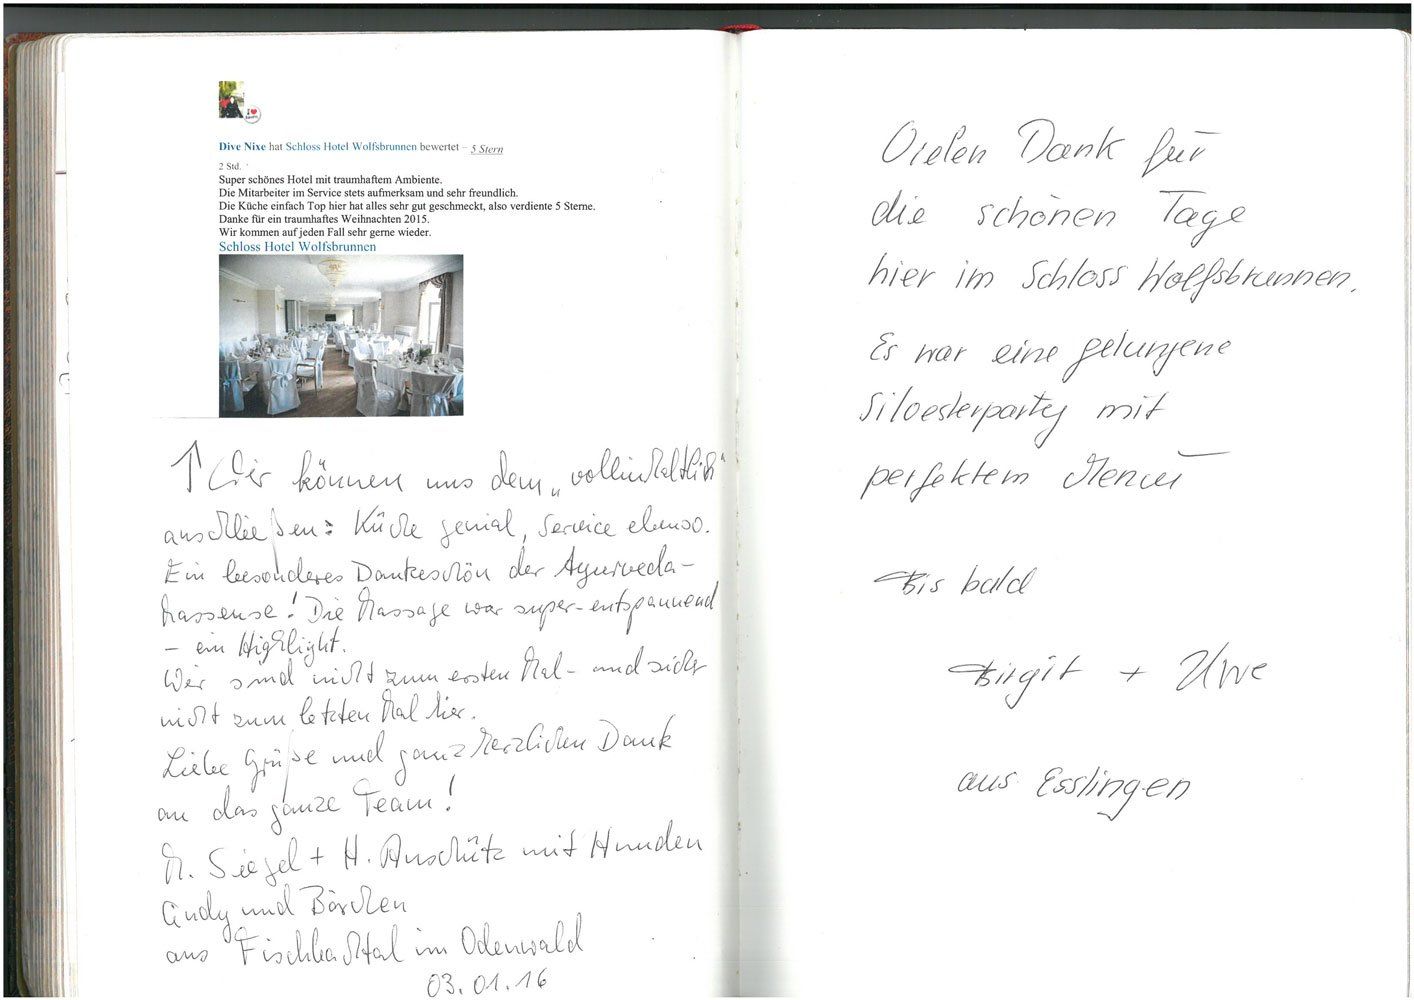 Dive Nixe hat Schloss Hotel Wolfsbrunnen bewertet – 5 Stern
2 Std.
Super schönes Hotel mit traumhaftem Ambiente.
Die Mitarbeiter im Service stets aufmerksam und sehr freundlich.
Die Küche einfach Top hier hat alles sehr gut geschmeckt, also verdiente 5 Sterne.
Danke für ein traumhaftes Weihnachten 2015.
Wir kommen auf jeden Fall sehr gerne wieder.
Schloss Hotel Wolfsbrunnen
↑ Wir können uns dem „vollinhaltlich“
anschließen: Küche genial, Service ebenso.
Ein besonderes Dankeschön der Ayurveda-
Masseuse! Die Massage war super-entspannend
– ein Highlight.
Wir sind nicht zum ersten Mal – und sicher
nicht zum letzten Mal hier.
Liebe Grüße und ganz herzlichen Dank
an das ganze Team!
M. Siegel + H. Anschütz mit Hunden
Cindy und Bärchen
aus Fischbachtal im Odenwald
03.01.16
Vielen Dank für
die schönen Tage
hier im Schloss Wolfsbrunnen.
Es war eine gelungene
Silvesterparty mit
perfektem Menü
Bis bald
Birgit + Uwe
aus Esslingen